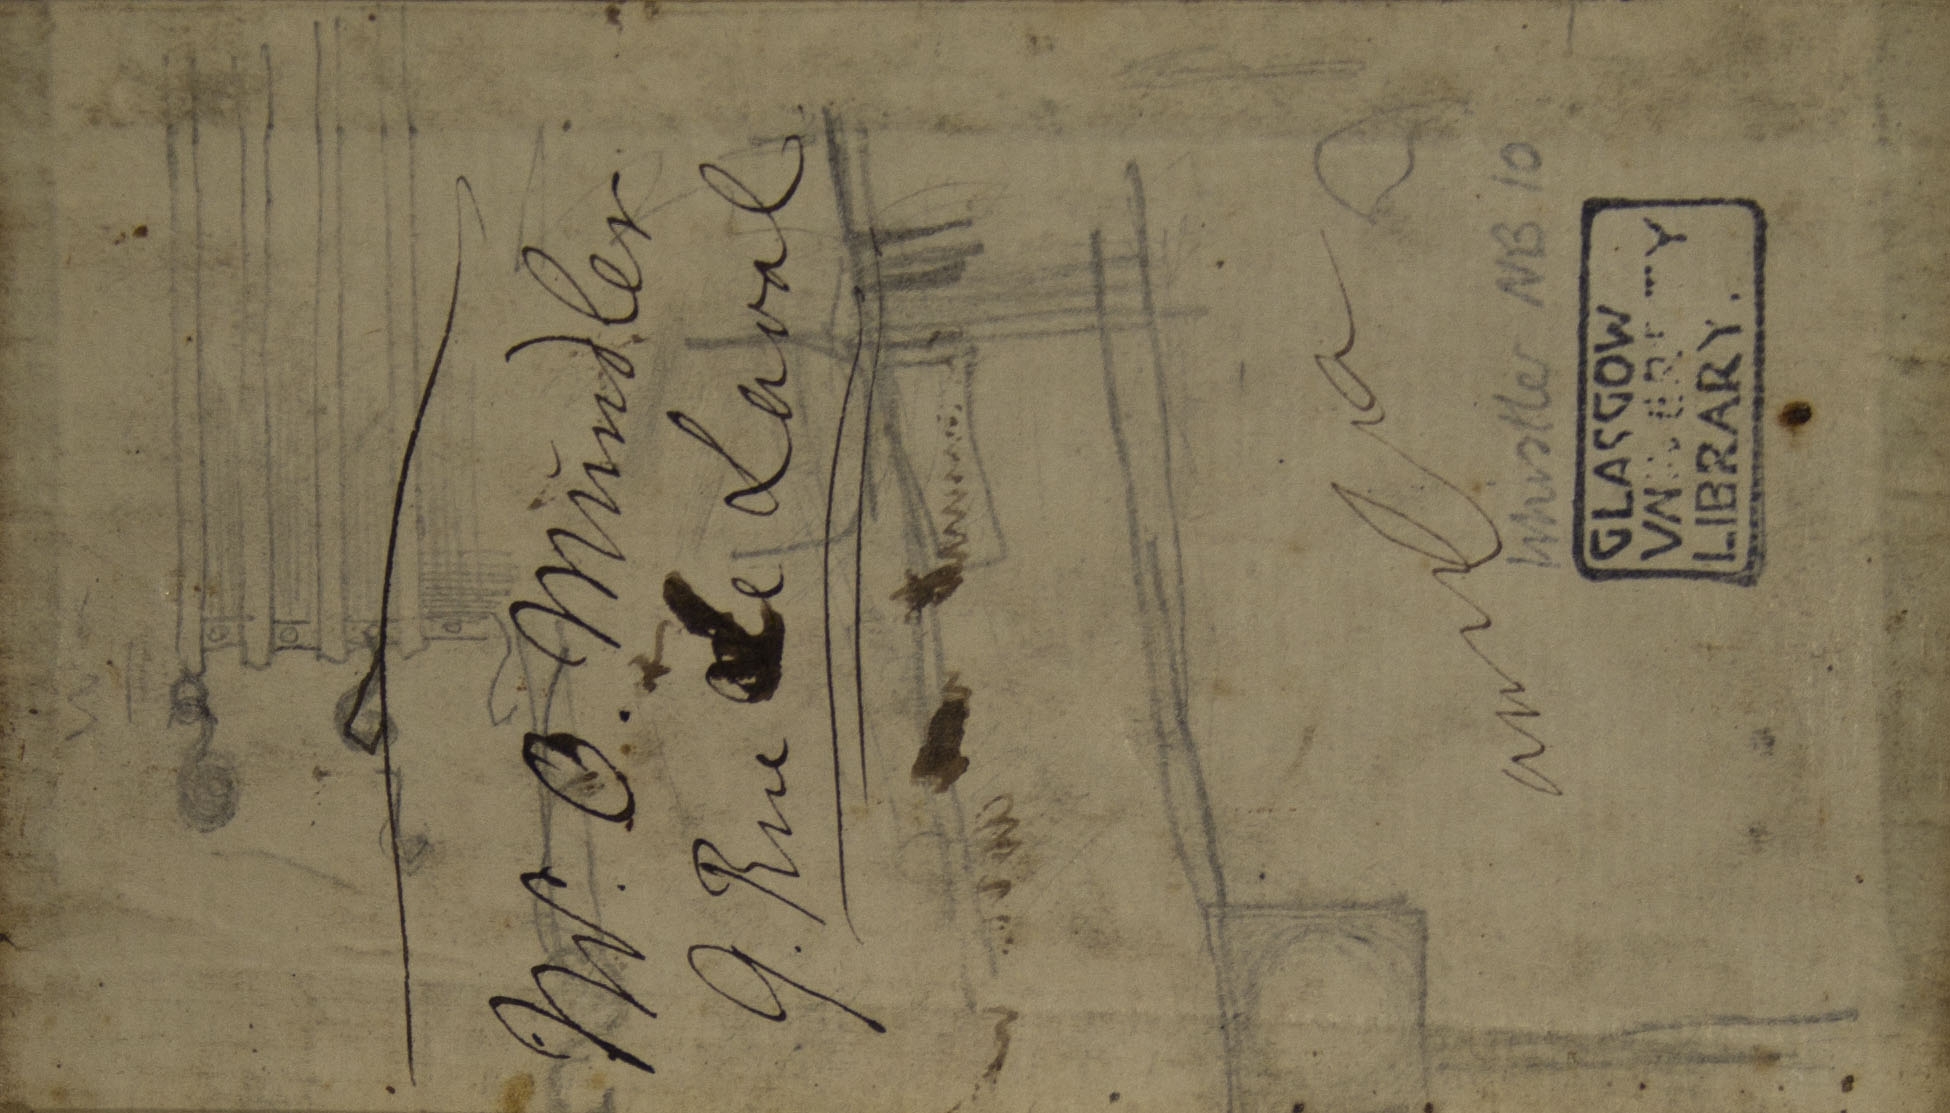 M. O. Mündler
9. Rue de Laval
Whistler NB 10
GLASGOW
VNIVERSITY
LIBRARY.